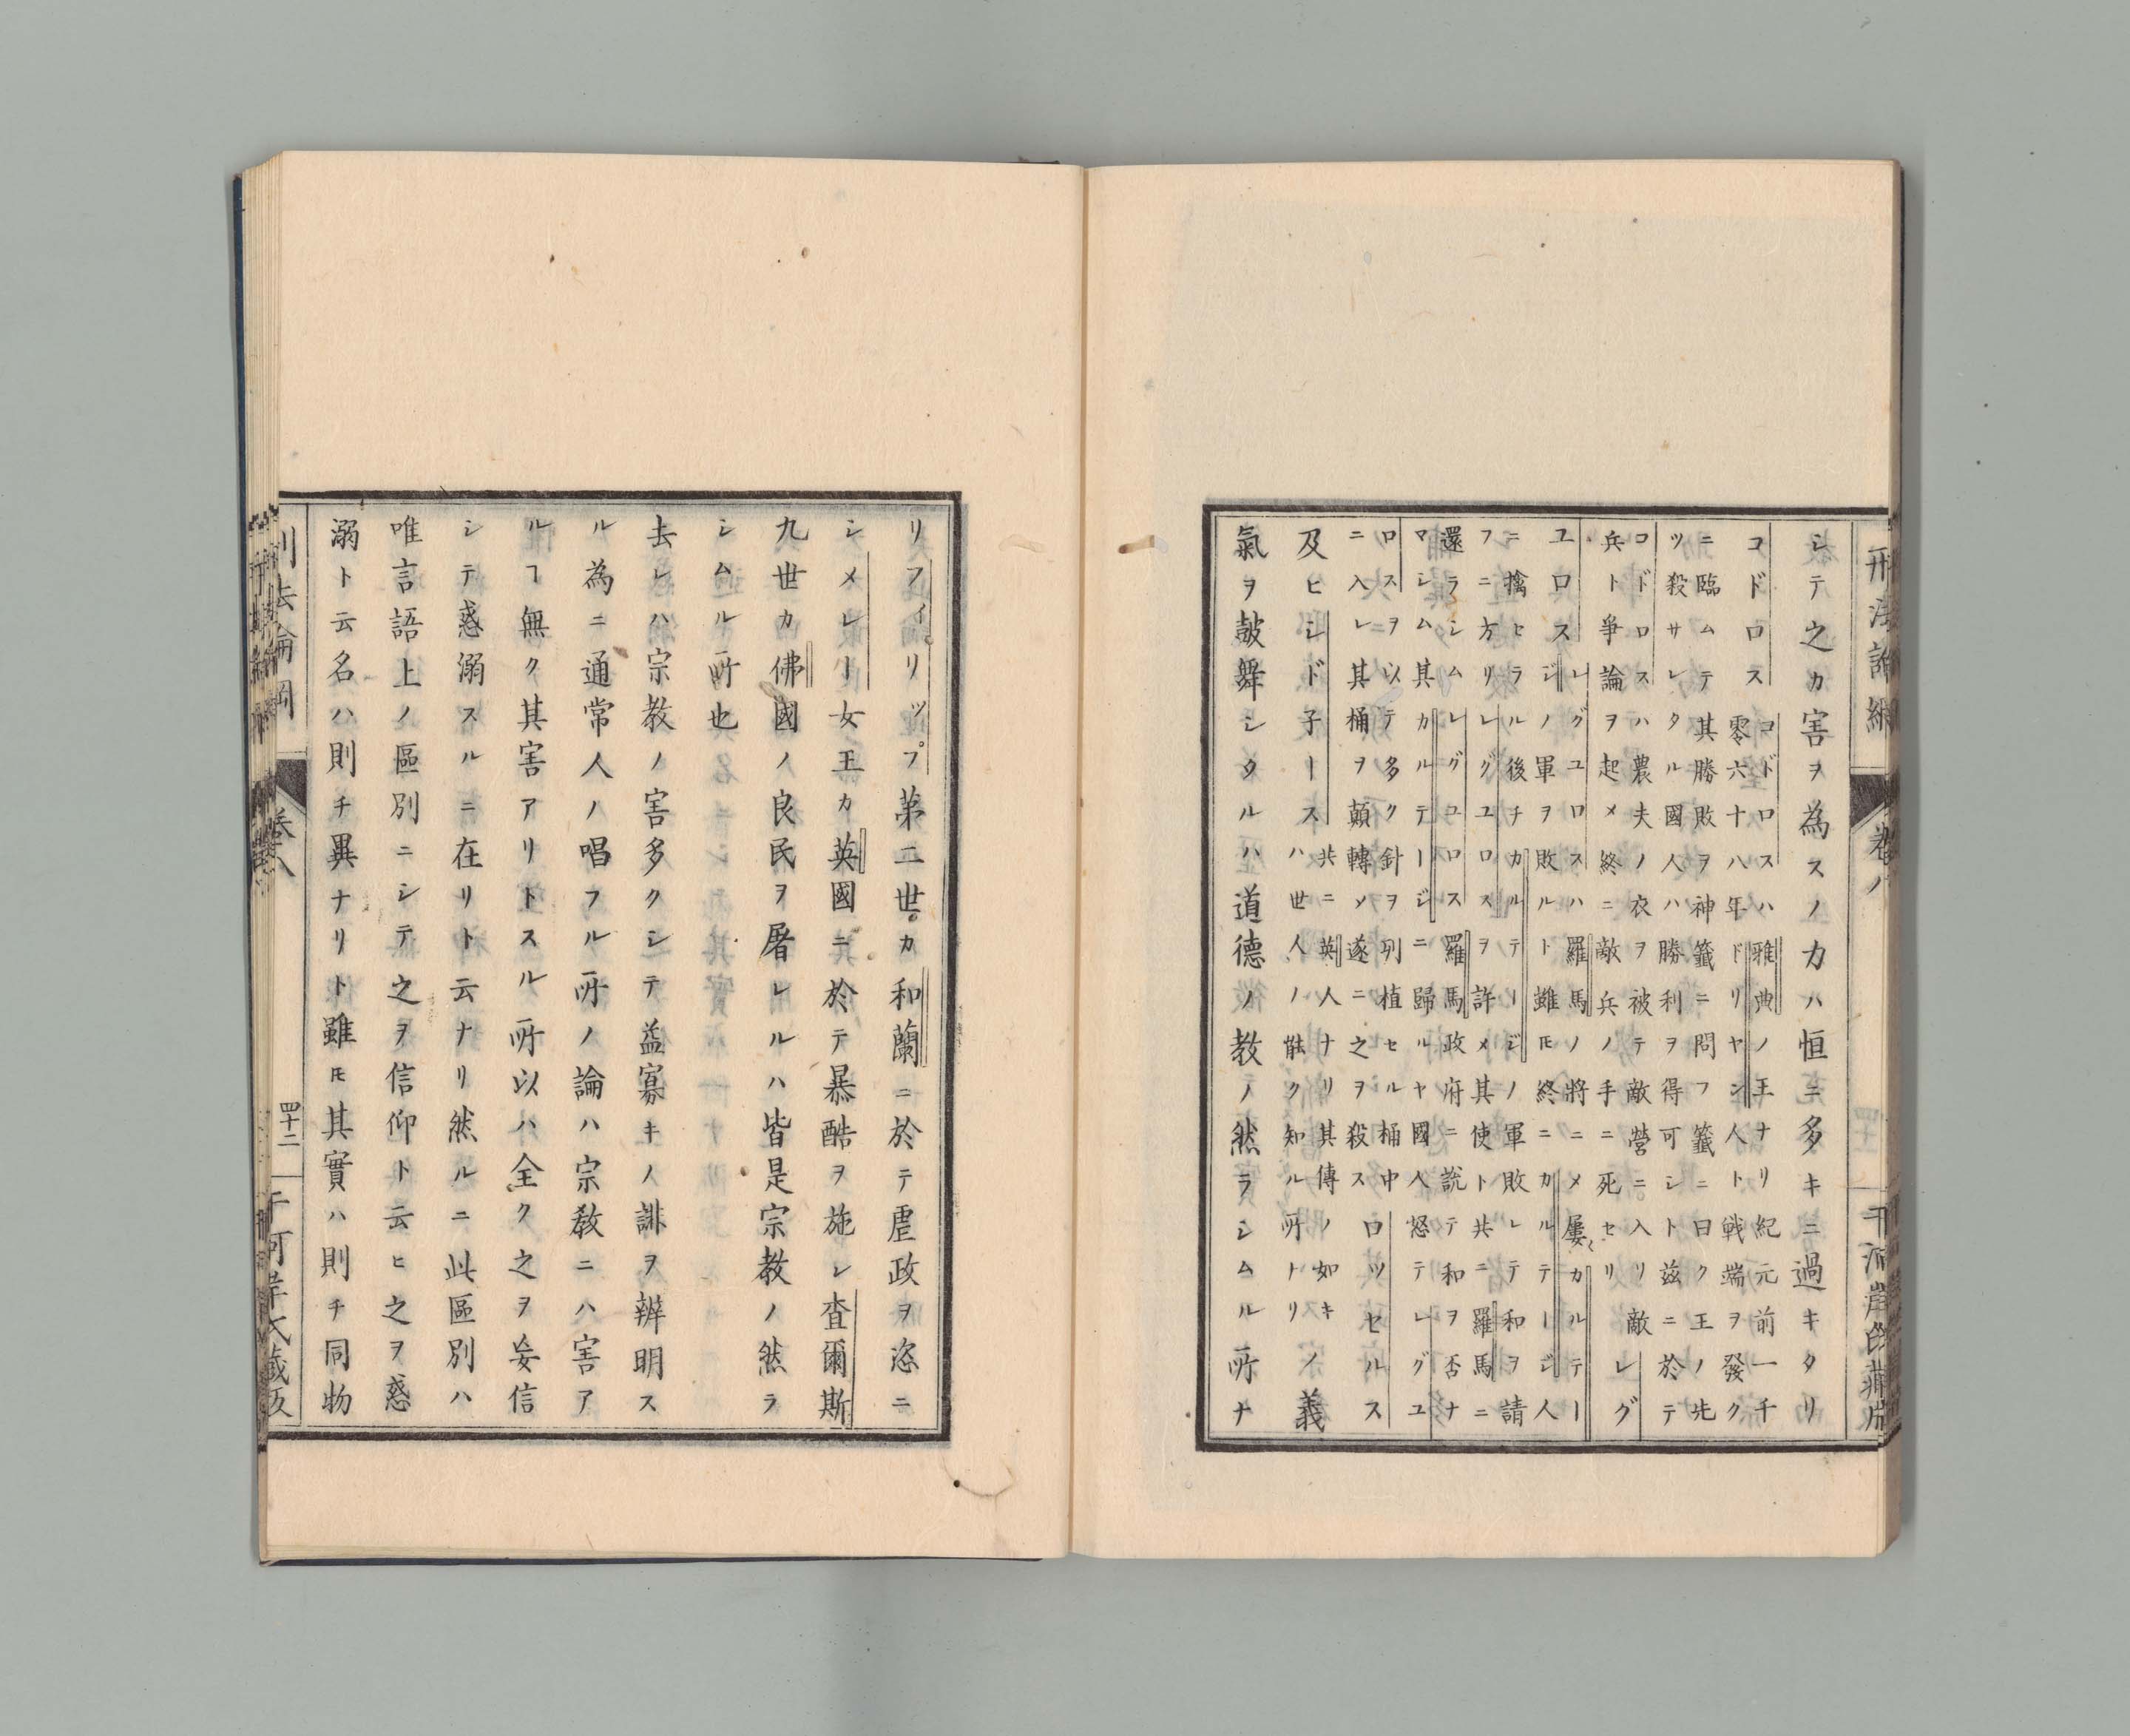 刑法論綱
卷八
千河岸氏藏版
シテ之カ害ヲ為スノ力ハ恒ニ多キニ過キタリ
コドロス
コドロスハ雅典ノ王ナリ紀元前一千
零六十八年ドリヤン人ト戦端ヲ發ク
ニ臨ムテ其勝敗ヲ神籤ニ問フ籤ニ曰ク王ノ先
ツ殺サレタル國人ハ勝利ヲ得可シト茲ニ於テ
コドロスハ農夫ノ衣ヲ被テ敵營ニ入リ敵
兵ト爭論ヲ起メ終ニ敵兵ノ手ニ死セリ
レグ
ユロス
レグユロスハ羅馬ノ將ニメ屡〻カルテー
ジノ軍ヲ敗ルト雖𪜈終ニカルテージ人
ニ擒ヒラル後チカルテージノ軍敗レテ和ヲ請
フニ方リレグユロスヲ許メ其使ト共ニ羅馬ニ
還ラシムレグユロス羅馬政府ニ説テ和ヲ否ナ
マシム其カルテージニ歸ルヤ國人怒テレグユ
ロスヲ以テ多ク針ヲ列植セル桶中
ニ入レ其桶ヲ顛轉メ遂ニ之ヲ殺ス
ロツセルス
及ヒシド子ース
共ニ英人ナリ其傳ノ如キ
ハ世人ノ能ク知ル所トリ
ノ義
氣ヲ皷舞シタルハ道德ノ教ノ然ラシムル所ナ
リフィリツプ第二世カ和蘭ニ於テ虐政ヲ恣ニ
シメレー女王カ英國ニ於テ暴酷ヲ施シ査爾斯
九世カ佛國ノ良民ヲ屠レルハ皆是宗教ノ然ラ
シムル所也
去レハ宗教ノ害多クシテ益寡キノ誹ヲ辨明ス
ル為ニ通常人ノ唱フル所ノ論ハ宗教ニハ害ア
ルヿ無ク其害アリトスル所以ハ全ク之ヲ妄信
シテ惑溺スルニ在リト云ナリ然ルニ此區別ハ
唯言語上ノ區別ニシテ之ヲ信仰ト云ヒ之ヲ惑
溺ト云名ハ則チ異ナリト雖𪜈其實ハ則チ同物
刑法論綱
卷八
四十二
千河岸氏藏版